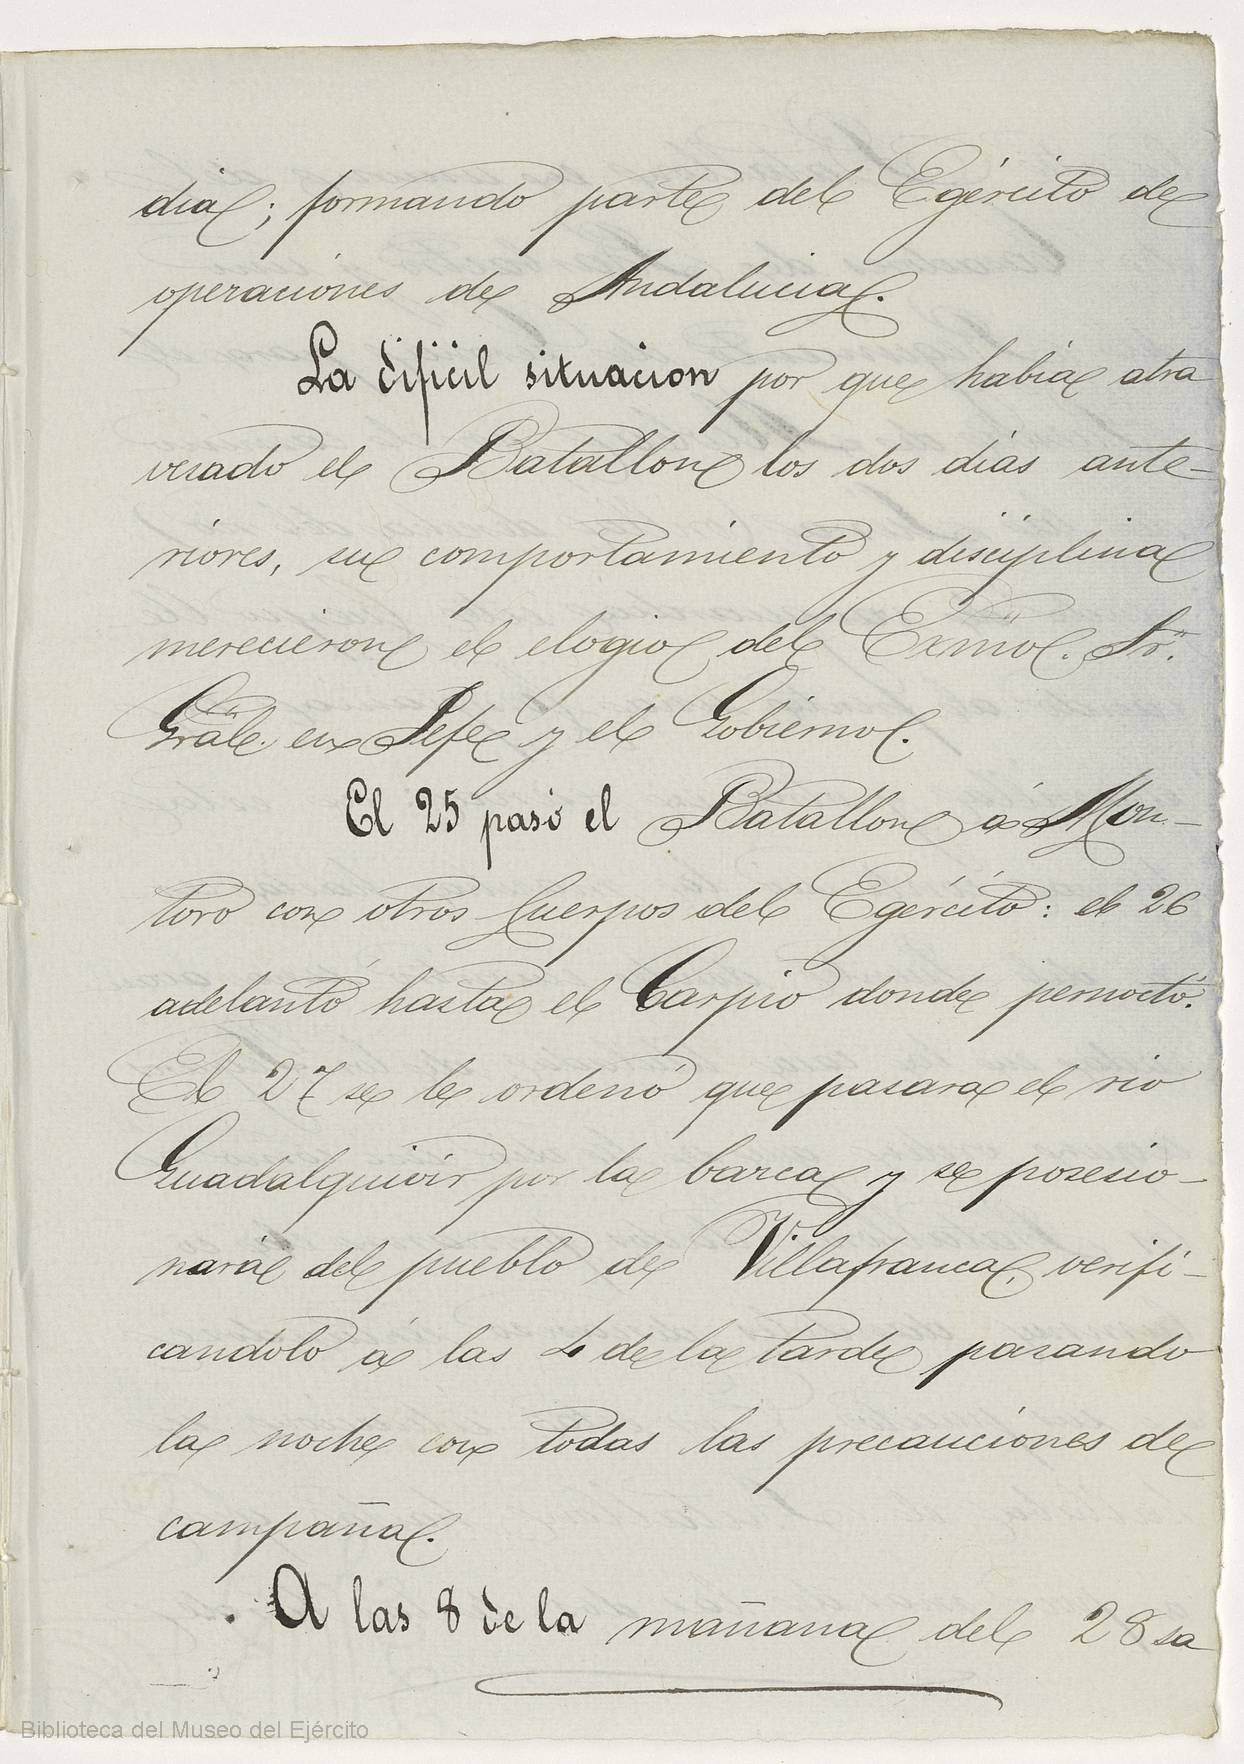 dia; formando parte del Egército de
operaciones de Andalucia.
La dificil situacion por que habia atra
vesado el Batallon los dos dias ante-
riores, su comportamiento y disciplina
merecieron el elogio del Exmo. Sr.
Gral. en Jefe y el Gobierno.
El 25 pasó el Batallon á Mon-
toro con otros Cuerpos del Egército: el 26
adelantó hasta el Carpio donde pernoctó.
El 27 se le ordenó que pasara el rio
Guadalquivir por la barca y se posesio-
nara del pueblo de Villafranca, verifi-
candolo á las 4 de la tarde pasando
la noche con todas las precauciones de
campaña.
A las 8 de la mañana del 28 sa
Biblioteca del Museo del Ejército